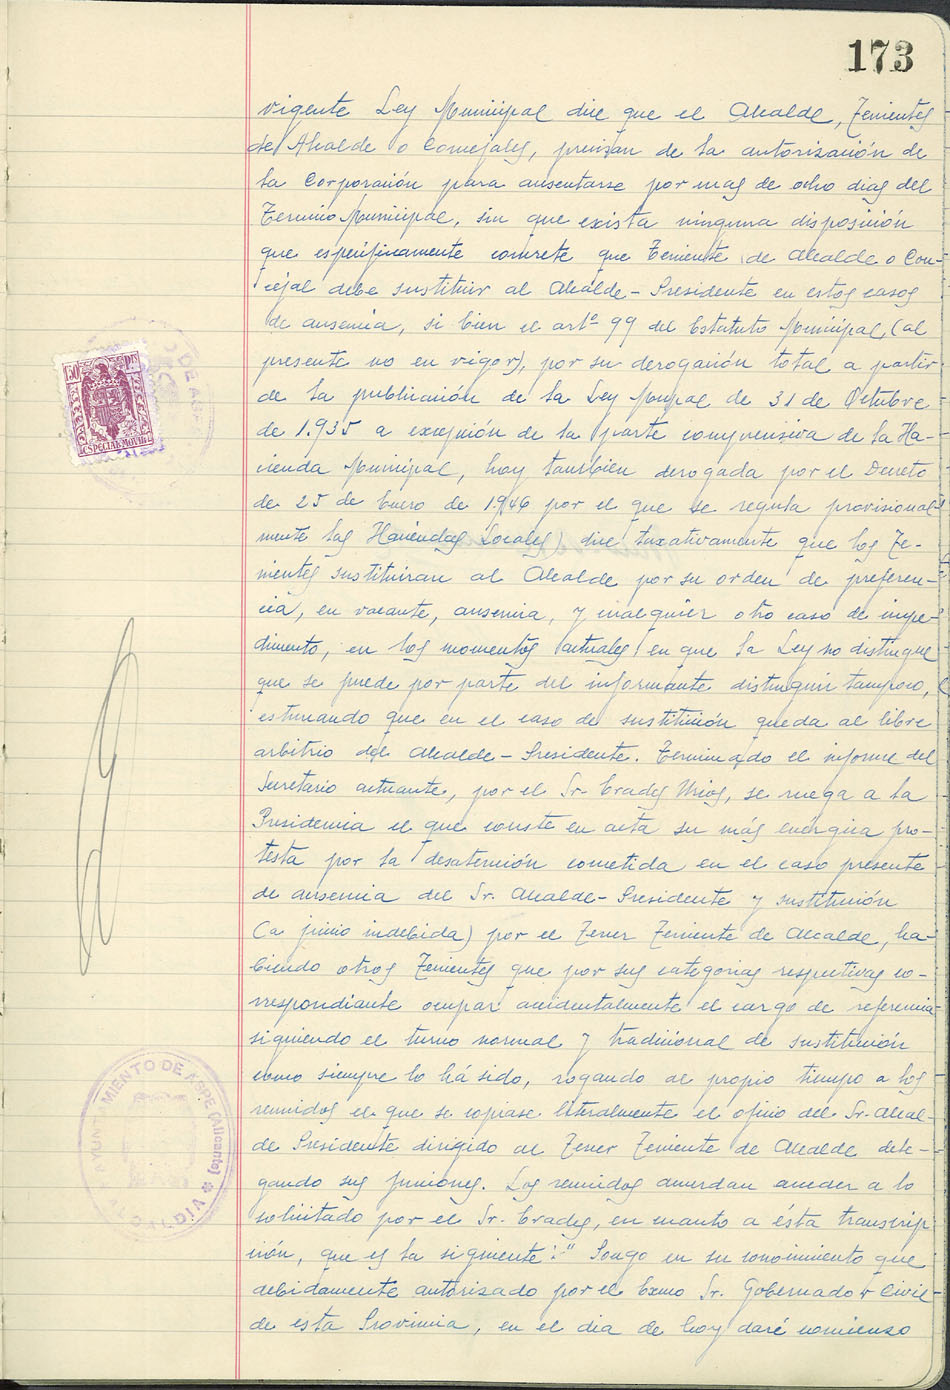 173
vigente Ley Municipal dice que el Alcalde, Tenientes
de Alcalde o Concejales, precisan de la autorización de
la Corporación para ausentarse por mas de ocho dias del
Termino Municipal, sin que exista ninguna disposición
que especificamente concrete que Teniente de Alcalde o Con-
cejal debe sustituir al Alcalde-Presidente en estos casos
de ausencia, si bien el artº 99 del Estatuto Municipal, (al
presente no en vigor), por su derogación total a partir
de la publicación de la Ley Munpal de 31 de Octubre
de 1.935 a excepción de la parte comprensiva de la Ha-
cienda Municipal, hoy tambien derogada por el Decreto
de 25 de Enero de 1.946 por el que se regula provisional-
mente las Haciendas Locales) dice taxativamente que los Te-
nientes sustituiran al Alcalde por su orden de preferen-
cia, en vacante, ausencia, y cualquier otro caso de impe-
dimento, en los momentos actuales en que la Ley no distingue
que se puede por parte del informante distinguir tampoco,
estimando que en el caso de sustitución queda al libre
arbitrio del Alcalde-Presidente. Terminado el informe del
Secretario actuante, por el Sr. Crades Urios, se ruega a la
Presidencia el que conste en acta su más enérgica pro-
testa por la desatención cometida en el caso presente
de ausencia del Sr. Alcalde-Presidente y sustitución
(a juicio indebida) por el Tercer Teniente de Alcalde, ha-
biendo otros Tenientes que por sus categorias respectivas co-
rrespondiante ocupar accidentalmente el cargo de referencia
siguiendo el turno normal y tradicional de sustitución
como siempre lo há sido, rogando al propio tiempo a los
reunidos el que se copiase literalmente el oficio del Sr. Alcal-
de Presidente dirigido al Tercer Teniente de Alcalde dele-
gando sus funciones. Los reunidos acuerdan acceder a lo
solicitado por el Sr. Crades, en cuanto a ésta transcrip
ción, que es la siguiente: " Pongo en su conocimiento que
debidamente autorizado por el Excmo Sr. Gobernador Civil
de esta Provincia, en el dia de hoy daré comienzo
50
PTS
ESPECIAL MOVIL
AYUNTAMIENTO DE ASPE (Alicante)
ALCALDIA